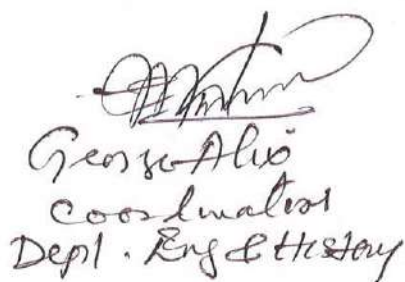 George Alex
Coordinator
Dept. Eng & History